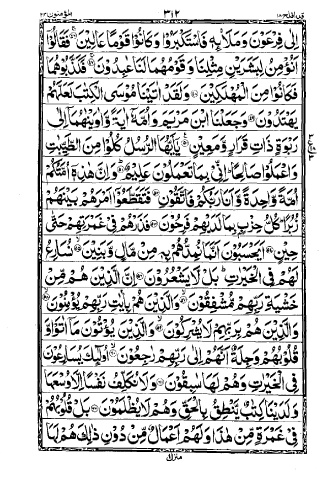 قد افلح ١٨ ٣١٢ المؤمنون ٢٣
اِلٰى فِرْعَوْنَ وَمَلَا۟ئِهٖ فَاسْتَكْبَرُوْا وَكَانُوْا قَوْمًا عَالِيْنَ ﴿٤٦﴾ فَقَالُوْٓا
اَنُؤْمِنُ لِبَشَرَيْنِ مِثْلِنَا وَقَوْمُهُمَا لَنَا عٰبِدُوْنَ ﴿٤٧﴾ فَكَذَّبُوْهُمَا
فَكَانُوْا مِنَ الْمُهْلَكِيْنَ ﴿٤٨﴾ وَلَقَدْ اٰتَيْنَا مُوْسَى الْكِتٰبَ لَعَلَّهُمْ
يَهْتَدُوْنَ ﴿٤٩﴾ وَجَعَلْنَا ابْنَ مَرْيَمَ وَاُمَّهٗٓ اٰيَةً وَّاٰوَيْنٰهُمَآ اِلٰى
رَبْوَةٍ ذَاتِ قَرَارٍ وَّمَعِيْنٍ ﴿٥٠﴾ يٰٓاَيُّهَا الرُّسُلُ كُلُوْا مِنَ الطَّيِّبٰتِ
وَاعْمَلُوْا صَالِحًا ؕ اِنِّيْ بِمَا تَعْمَلُوْنَ عَلِيْمٌ ﴿٥١﴾ وَاِنَّ هٰذِهٖٓ اُمَّتُكُمْ
اُمَّةً وَّاحِدَةً وَّاَنَا رَبُّكُمْ فَاتَّقُوْنِ ﴿٥٢﴾ فَتَقَطَّعُوْٓا اَمْرَهُمْ بَيْنَهُمْ
زُبُرًا ؕ كُلُّ حِزْبٍۭ بِمَا لَدَيْهِمْ فَرِحُوْنَ ﴿٥٣﴾ فَذَرْهُمْ فِيْ غَمْرَتِهِمْ حَتّٰى
حِيْنٍ ﴿٥٤﴾ اَيَحْسَبُوْنَ اَنَّمَا نُمِدُّهُمْ بِهٖ مِنْ مَّالٍ وَّبَنِيْنَ ﴿٥٥﴾ نُسَارِعُ
لَهُمْ فِي الْخَيْرٰتِ ؕ بَلْ لَّا يَشْعُرُوْنَ ﴿٥٦﴾ اِنَّ الَّذِيْنَ هُمْ مِّنْ
خَشْيَةِ رَبِّهِمْ مُّشْفِقُوْنَ ﴿٥٧﴾ وَالَّذِيْنَ هُمْ بِاٰيٰتِ رَبِّهِمْ يُؤْمِنُوْنَ ﴿٥٨﴾
وَالَّذِيْنَ هُمْ بِرَبِّهِمْ لَا يُشْرِكُوْنَ ﴿٥٩﴾ وَالَّذِيْنَ يُؤْتُوْنَ مَآ اٰتَوْا وَّ
قُلُوْبُهُمْ وَجِلَةٌ اَنَّهُمْ اِلٰى رَبِّهِمْ رٰجِعُوْنَ ﴿٦٠﴾ اُولٰٓئِكَ يُسٰرِعُوْنَ
فِي الْخَيْرٰتِ وَهُمْ لَهَا سٰبِقُوْنَ ﴿٦١﴾ وَلَا نُكَلِّفُ نَفْسًا اِلَّا وُسْعَهَا
وَلَدَيْنَا كِتٰبٌ يَّنْطِقُ بِالْحَقِّ وَهُمْ لَا يُظْلَمُوْنَ ﴿٦٢﴾ بَلْ قُلُوْبُهُمْ
فِيْ غَمْرَةٍ مِّنْ هٰذَا وَلَهُمْ اَعْمَالٌ مِّنْ دُوْنِ ذٰلِكَ هُمْ لَهَا
منزل